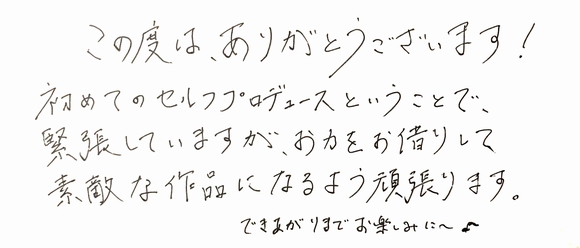 この度は、ありがとうございます!
初めてのセルフプロデュースということで、
緊張していますが、お力をお借りして
素敵な作品になるよう頑張ります。
できあがりまでお楽しみに〜♪